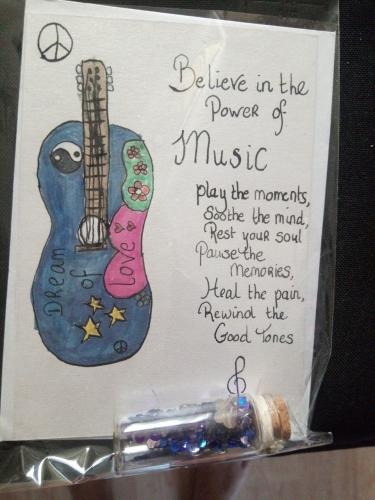 Believe in the
Power of
Music
play the moments,
Soothe the mind,
Rest your soul
Pause the
Memories,
Heal the pain,
Rewind the
Good Tones
Dream
of
Love